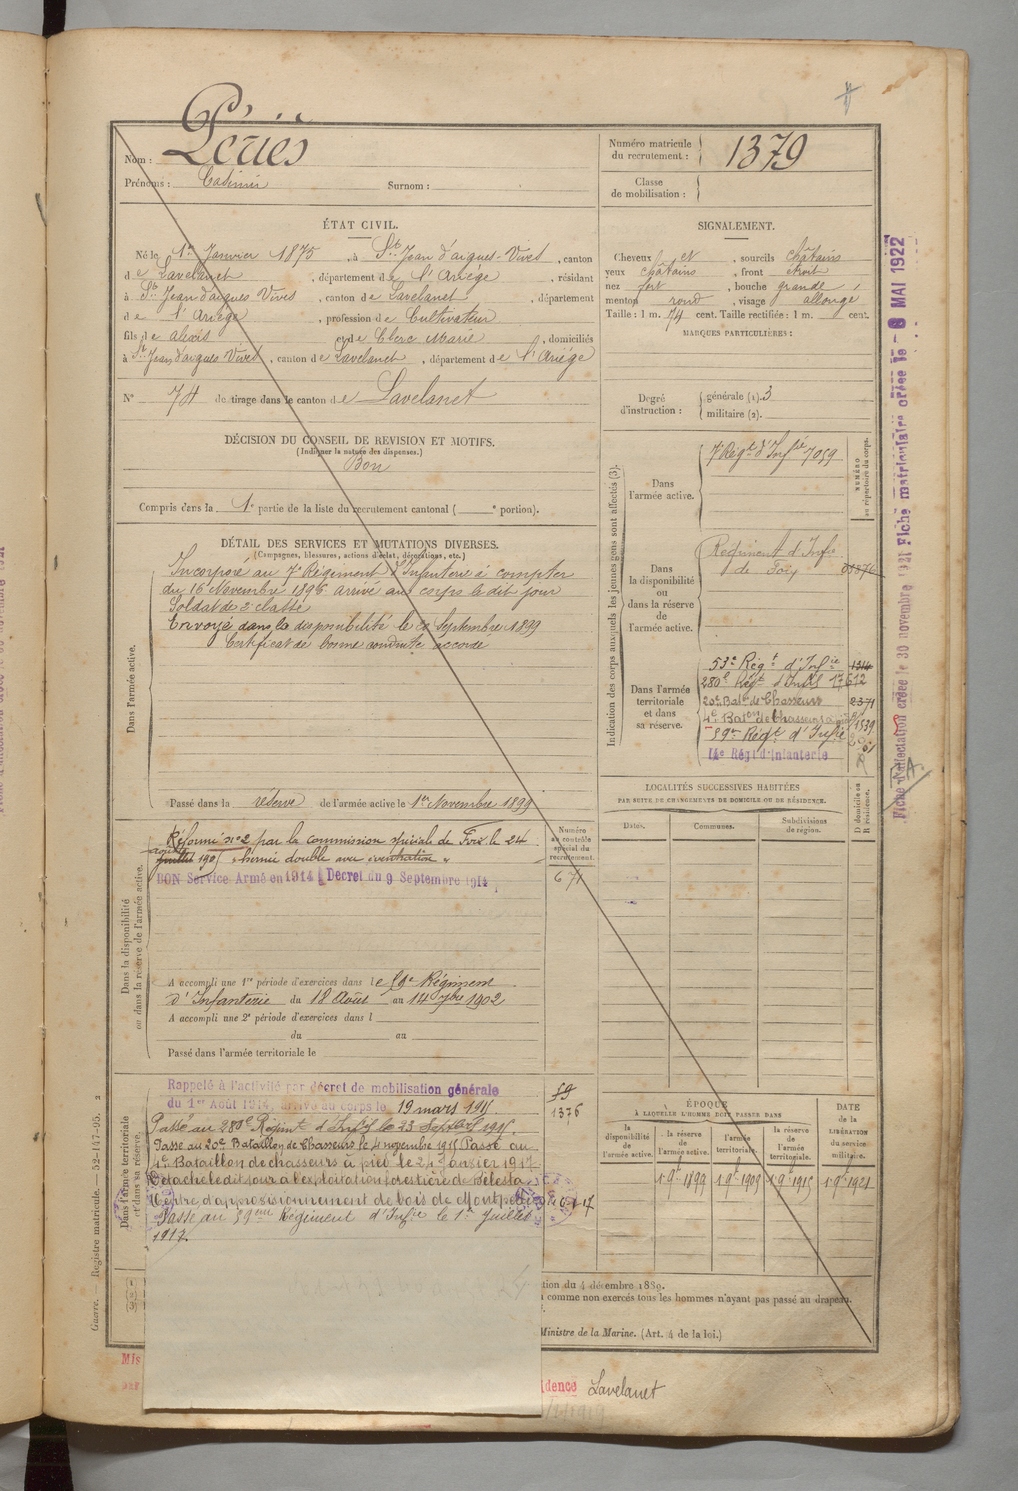 Nom : Péries
Prénoms : Casimir Surnom :
Numéro matricule du recrutement : 1379
Classe de mobilisation :
ÉTAT CIVIL.
Né le 1er Janvier 1875, à St Jean d'aigues-Vives, canton
de Lavelanet, département de l'Ariège, résidant
à St Jean d'aigues Vives, canton de Lavelanet, département
de l'Ariège, profession de Cultivateur
fils de alexis et de Clerc Marie, domiciliés
à St Jean d'aigues Vives, canton de Lavelanet, département de l'Ariège
N° 74 de tirage dans le canton de Lavelanet
DÉCISION DU CONSEIL DE REVISION ET MOTIFS.
(Indiquer la nature des dispenses.)
Bon
Compris dans la 1e partie de la liste du recrutement cantonal ( e portion).
SIGNALEMENT.
Cheveux et, sourcils châtains
yeux châtains, front étroit
nez fort, bouche grande
menton rond, visage allongé
Taille : 1 m. 74 cent. Taille rectifiée : 1 m. cent.
MARQUES PARTICULIÈRES :
Degré d'instruction : générale (1). 3
militaire (2).
DÉTAIL DES SERVICES ET MUTATIONS DIVERSES.
(Campagnes, blessures, actions d'éclat, décorations, etc.)
Dans l'armée active.
Incorporé au 7e Régiment d'Infanterie à compter
du 16 Novembre 1896 arrivé au corps le dit jour
Soldat de 2e classe
Envoyé dans la disponibilité le Septembre 1899
Certificat de bonne conduite accordé
Passé dans la réserve de l'armée active le 1er Novembre 1899
Dans la disponibilité
ou dans la réserve de l'armée active.
Réformé n°2 par la commission spéciale de Foix le 24
août
juillet 190 "hernie double avec éventration"
BON Service Armé en 1914 Decret du 9 Septembre 1914
A accompli une 1re période d'exercices dans le 59e Régiment
d'Infanterie du 18 Août au 14 7bre 1902
A accompli une 2e période d'exercices dans l
du au
Passé dans l'armée territoriale le
Numéro au contrôle spécial du recrutement.
671
Dans l'armée territoriale
et dans sa réserve.
Rappelé à l'activité par décret de mobilisation générale
du 1er Août 1914, arrivé au corps le 19 mars 1915
Passé au 280e Régimt d'Infie le 23 Septbre 1915
Passe au 20e Bataillon de Chasseurs le 4 novembre 1915 Passé au
4e Bataillon de chasseurs à pied le 24 Janvier 1917
Détaché le dit jour à l'exploitation forestière de Bélesta
Centre d'approvisionnement de bois de Montpellier 6-1-17
Passé au 59eme Régiment d'Infie le 1er Juillet
1917.
59
1376
Indication des corps auxquels les jeunes gens sont affectés (3).
NUMÉRO au répertoire du corps.
Dans l'armée active.
7e Régt d'Infie 7059
Dans la disponibilité ou dans la réserve de l'armée active.
Régiment d'Infie
de Foix
Dans l'armée territoriale et dans sa réserve.
53e Régt d'Infie 1314
280e Régt d'Infie 17612
20e Batn de Chasseurs 2371
4e Baton de Chasseurs à pied 1539
59e Régt d'Infie
14e Régt d'Infanterie
LOCALITÉS SUCCESSIVES HABITÉES
PAR SUITE DE CHANGEMENTS DE DOMICILE OU DE RÉSIDENCE.
Dates. Communes. Subdivisions de région. D domicile ou R résidence.
ÉPOQUE
À LAQUELLE L'HOMME DOIT PASSER DANS
DATE de la LIBÉRATION du service militaire.
la disponibilité de l'armée active. la réserve de l'armée active. l'armée territoriale. la réserve de l'armée territoriale.
1 9bre 1899 1 9bre 1909 1 9bre 1915 1 9bre 1921
tion du 4 décembre 1889.
comme non exercés tous les hommes n'ayant pas passé au drapeau.
Ministre de la Marine. (Art. 4 de la loi.)
Mis
idence Lavelanet
Guerre. — Registre matricule. — 52-1/47-95. 2
Fiche d'affectation créée le 30 novembre 1921 Fiche matriculaire créée le 8 MAI 1922